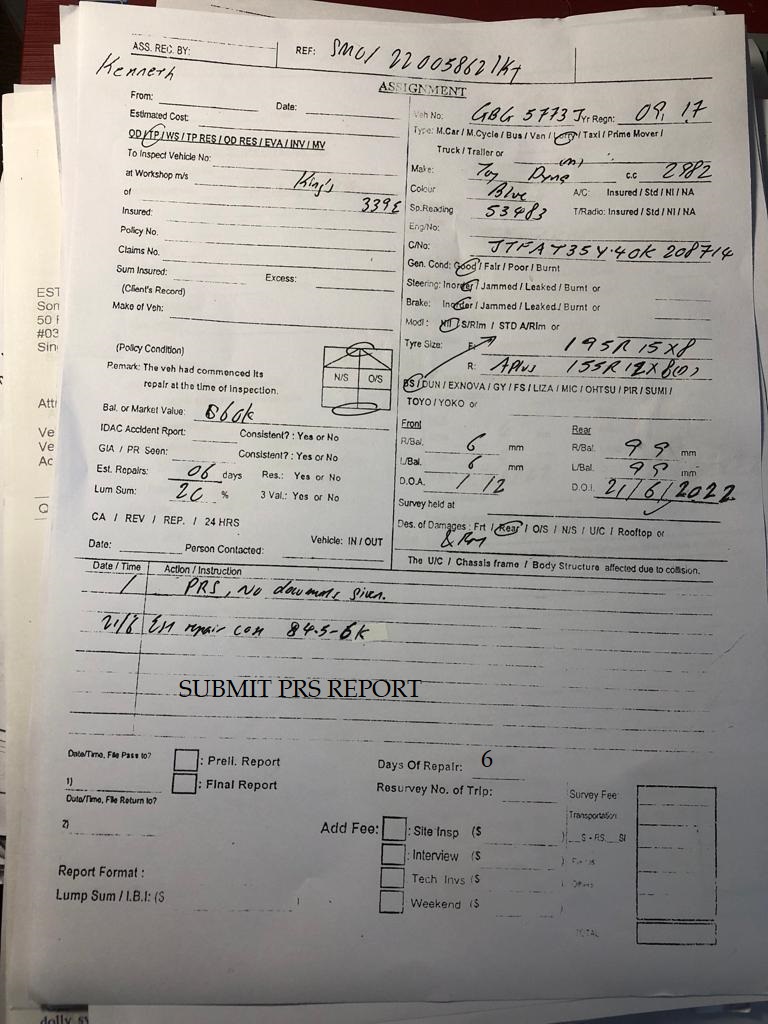 ASS. REC. BY:
REF: SMO/ 22005862/KT
Kenneth
ASSIGNMENT
From: Date:
Estimated Cost:
OD / TP / WS / TP RES / OD RES / EVA / INV / MV
To Inspect Vehicle No:
at Workshop m/s King's
of 339E
Insured:
Policy No.
Claims No.
Sum Insured: Excess:
(Client's Record)
Make of Veh:
(Policy Condition)
Remark: The veh had commenced its
repair at the time of inspection.
N/S O/S
Bal. or Market Value: $60k
IDAC Accident Rport: Consistent? : Yes or No
GIA / PR Seen: Consistent? : Yes or No
Est. Repairs: 06 days Res.: Yes or No
Lum Sum: 20 % 3 Val.: Yes or No
CA / REV / REP. / 24 HRS
Vehicle: IN / OUT
Date: Person Contacted:
Veh No: GBG 5773J Yr Regn: 09, 17
Type: M.Car / M.Cycle / Bus / Van / Lorry / Taxi / Prime Mover /
Truck / Trailer or
Make: Toy Dyna c.c 2982
Colour Blue A/C: Insured / Std / NI / NA
Sp.Reading 53483 T/Radio: Insured / Std / NI / NA
Eng/No:
C/No: JTFAT35Y.40K 208714
Gen. Cond: Good / Fair / Poor / Burnt
Steering: Inorder / Jammed / Leaked / Burnt or
Brake: Inorder / Jammed / Leaked / Burnt or
Modi: Nil / S/Rim / STD A/Rim or
Tyre Size: F: 195R15X8
R: APlus 155R12X8(0)
BS / DUN / EXNOVA / GY / FS / LIZA / MIC / OHTSU / PIR / SUMI /
TOYO / YOKO or
Front Rear
R/Bal. 6 mm R/Bal. 99 mm
L/Bal. 6 mm L/Bal. 99 mm
D.O.A. 1/12 D.O.I. 21/6/2022
Survey held at
Des. of Damages: Frt / Rear / O/S / N/S / U/C / Rooftop or
The U/C / Chassis frame / Body Structure affected due to collision.
Date / Time Action / Instruction
/ PRS, No documents given.
21/6 Est repair cost $4.5-6k
SUBMIT PRS REPORT
Date/Time, File Pass to?
: Prell. Report
: Final Report
1)
Date/Time, File Return to?
2)
Days Of Repair: 6
Resurvey No. of Trip:
Add Fee: : Site Insp ($ )
: Interview ($ )
: Tech Invs ($ )
: Weekend ($ )
Survey Fee:
Transportation
TOTAL
Report Format :
Lump Sum / I.B.I: ($ )
EST
Son
50
#03
Sin
Att
Ve
Ve
Ac
Q
dolly